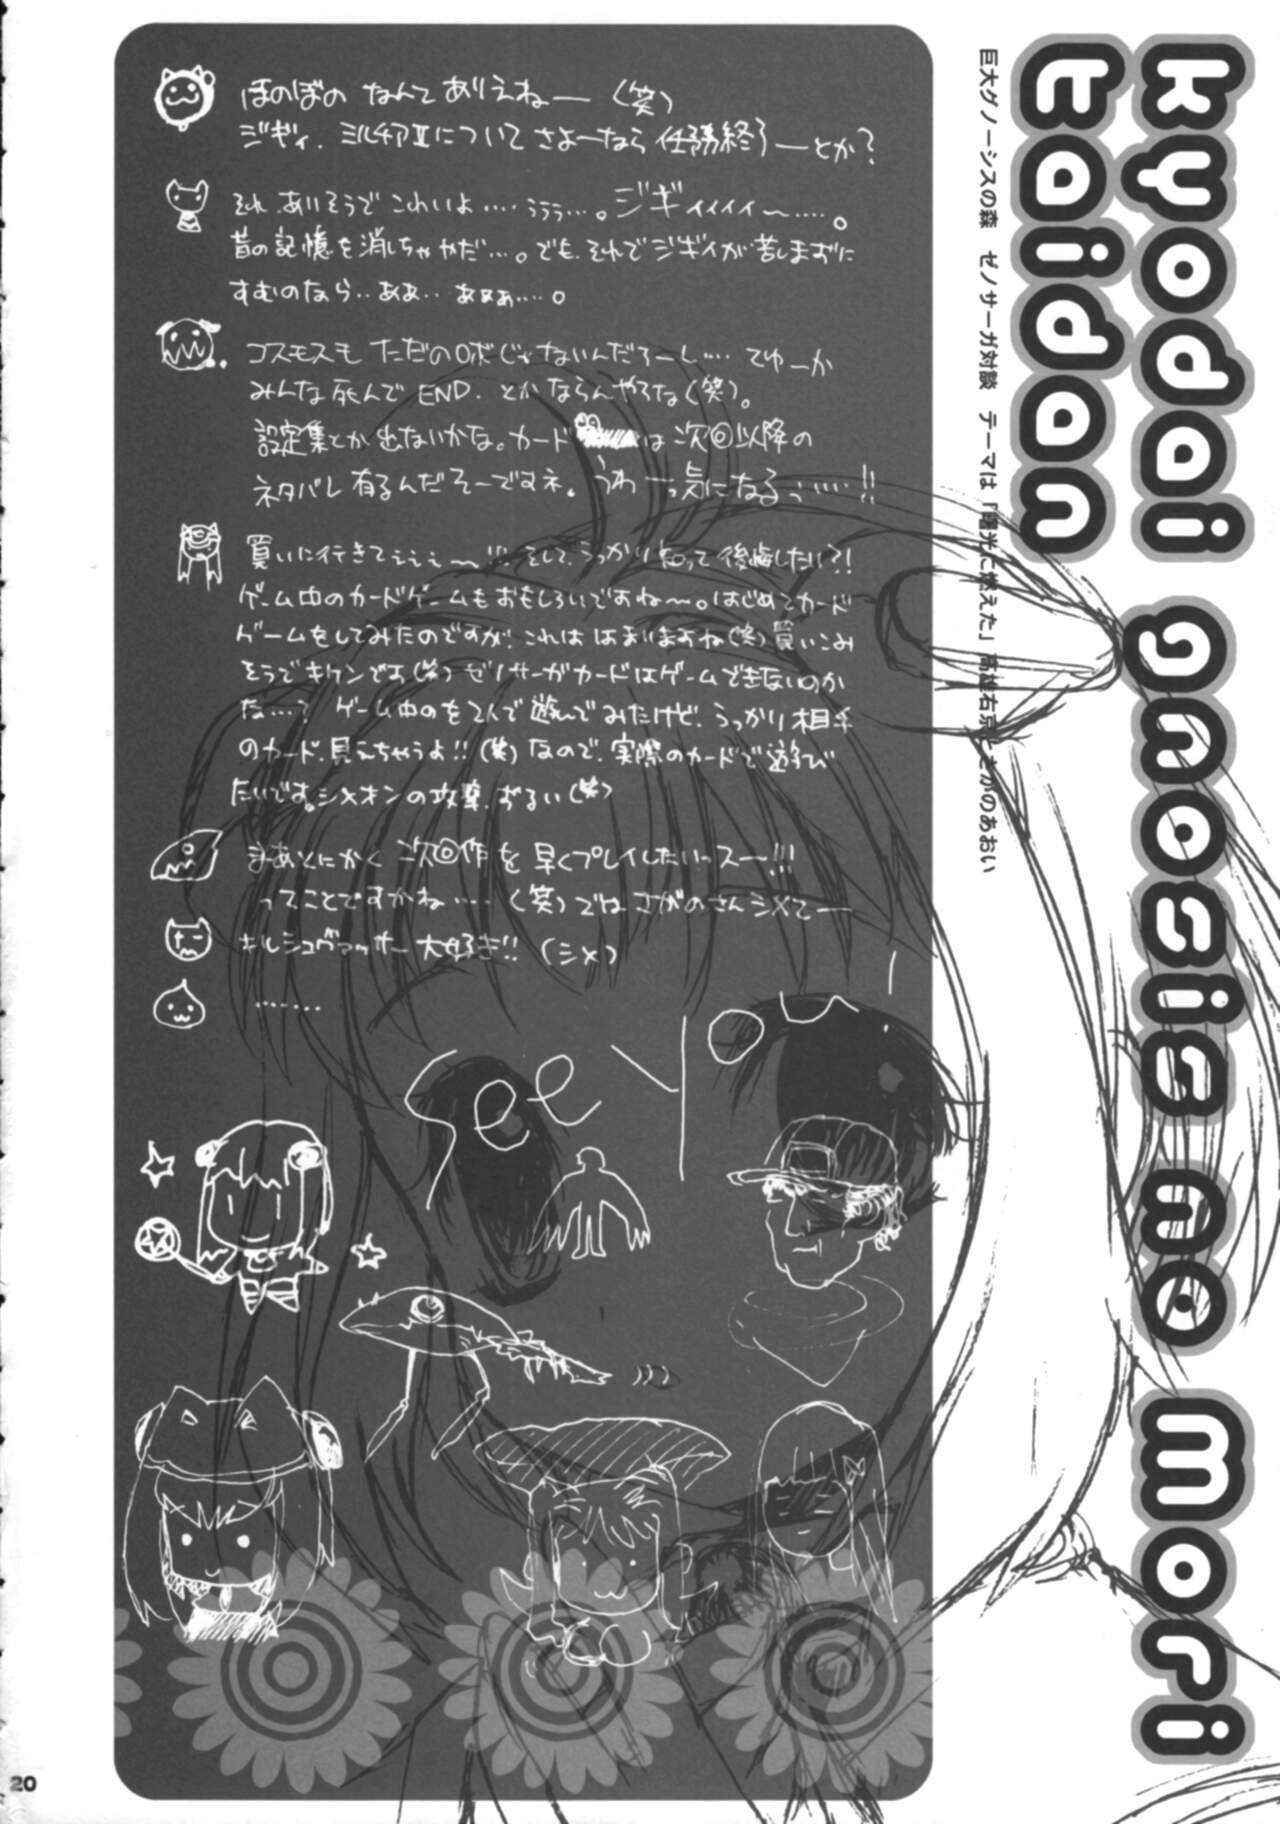 kyodai gnosis no mori
taidan
巨大グノーシスの森　ゼノサーガ対談　テーマは「曙光に燃えた」高雄右京とさがのあおい
ほのぼの なんて ありえねー (笑)
ジギィ、ミルチアⅡについて さよーなら 任務終了ーとか?
それ、ありそうで こわいよ‥‥ううう…。ジギィィィィ〜‥‥。
昔の記憶を消しちゃやだ…。でも、それでジギィが苦しまずに
すむのなら‥ああ‥ あああ‥‥。
コスモスも ただのロボじゃないんだろーし‥‥ てゆーか
みんな死んで END. とかならんやろな(笑)。
設定集とか出ないかな。カード は 次回以降の
ネタバレ有るんだそーですネ。うわーっ気になるっ‥‥!!
買いに行きてぇぇぇ〜!! そして、うっかり知って後悔したい?!
ゲーム中のカードゲームもおもしろいですね〜。はじめてカード
ゲームをしてみたのですが! これは はまりますね(笑)買いこみ
そうでキケンです(笑)ゼノサーガカードはゲームできないのか
な…? ゲーム中のを2人で遊んでみたけど、うっかり相手
のカード、見えちゃうよ!!(笑)なので、実際のカードで遊び
たいです。シメオンの攻撃、ずるい(笑)
まあとにかく 次回作を 早くプレイしたいっスー!!!
ってことですかね‥‥(笑)では さがのさんシメてー
キルシュヴァッサー 大好き!! (シメ)
‥‥‥
See you!
20